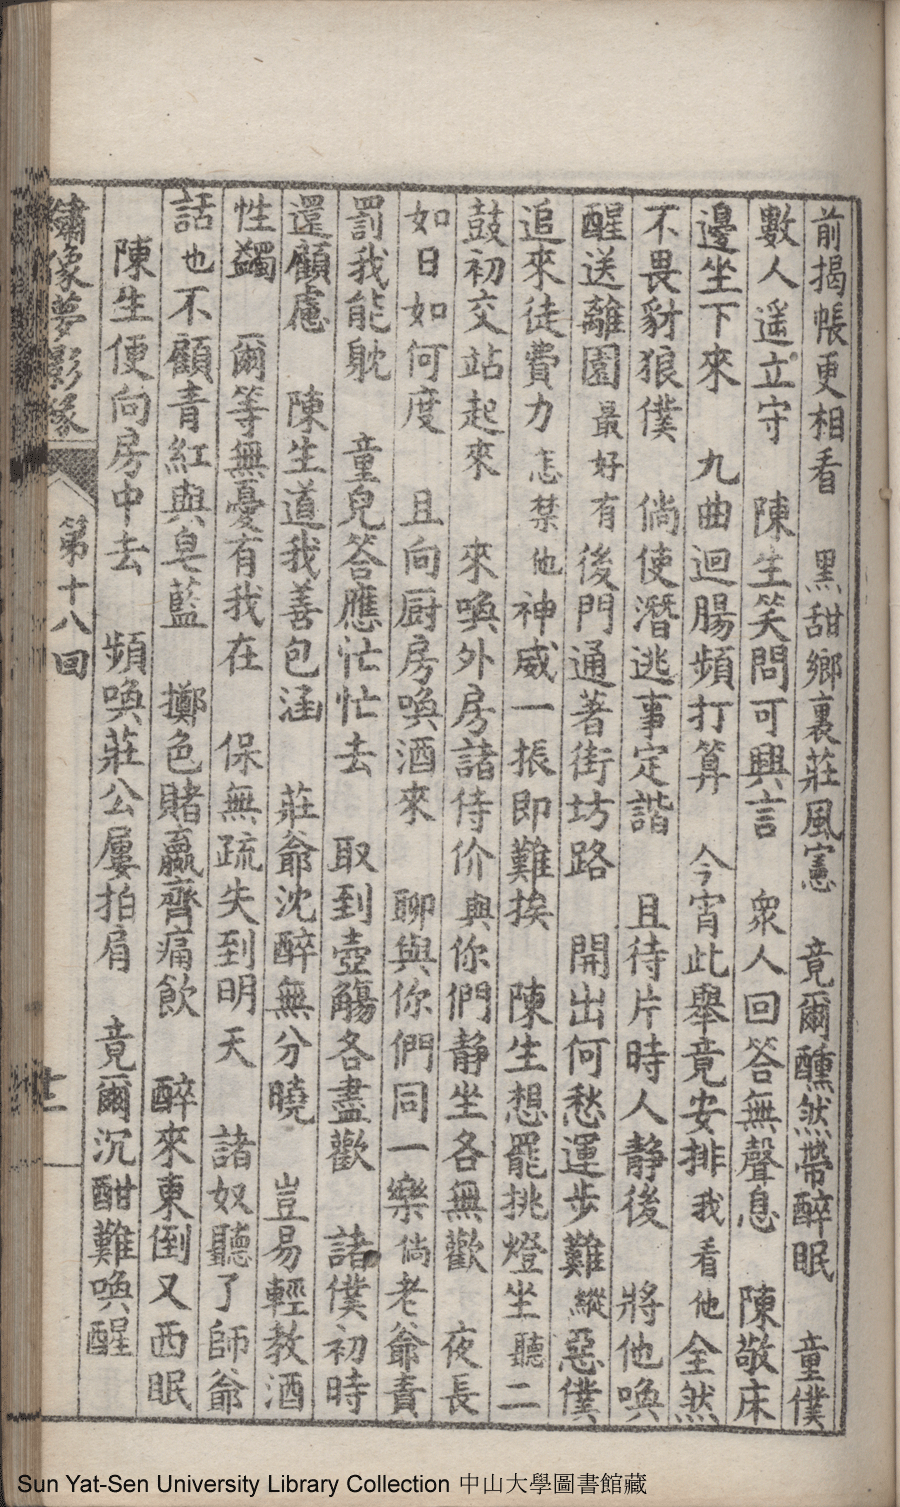 前揭帳更相看　黑甜鄉裏莊風憲　竟爾醺然帶醉眠　童僕
數人遥立守　陳生笑問可興言　衆人回答無聲息　陳敬床
邊坐下來　九曲迴腸頻打算　今宵此舉竟安排我看他全然
不畏豺狼僕　倘使潛逃事定諧　且待片時人静後　將他喚
醒送離園最好有後門通著街坊路　開出何愁運步難縱惡僕
追來徒費力怎禁他神威一振即難挨　陳生想罷挑燈坐聽二
鼓初交站起來　來喚外房諸侍价與你們静坐各無歡　夜長
如日如何度　且向厨房喚酒來　聊與你們同一樂倘老爺責
罰我能躭　童兒答應忙忙去　取到壺觴各盡歡　諸僕初時
還顧慮　陳生道我善包涵　莊爺沈醉無分曉　豈易輕教酒
性蠲　爾等無憂有我在　保無疏失到明天　諸奴聽了師爺
話也不顧青紅與皂藍　擲色賭贏齊痛飲　醉來東倒又西眠
陳生便向房中去　頻喚莊公屢拍肩　竟爾沉酣難喚醒
繡像夢影緣　第十八回
Sun Yat-Sen University Library Collection 中山大學圖書館藏